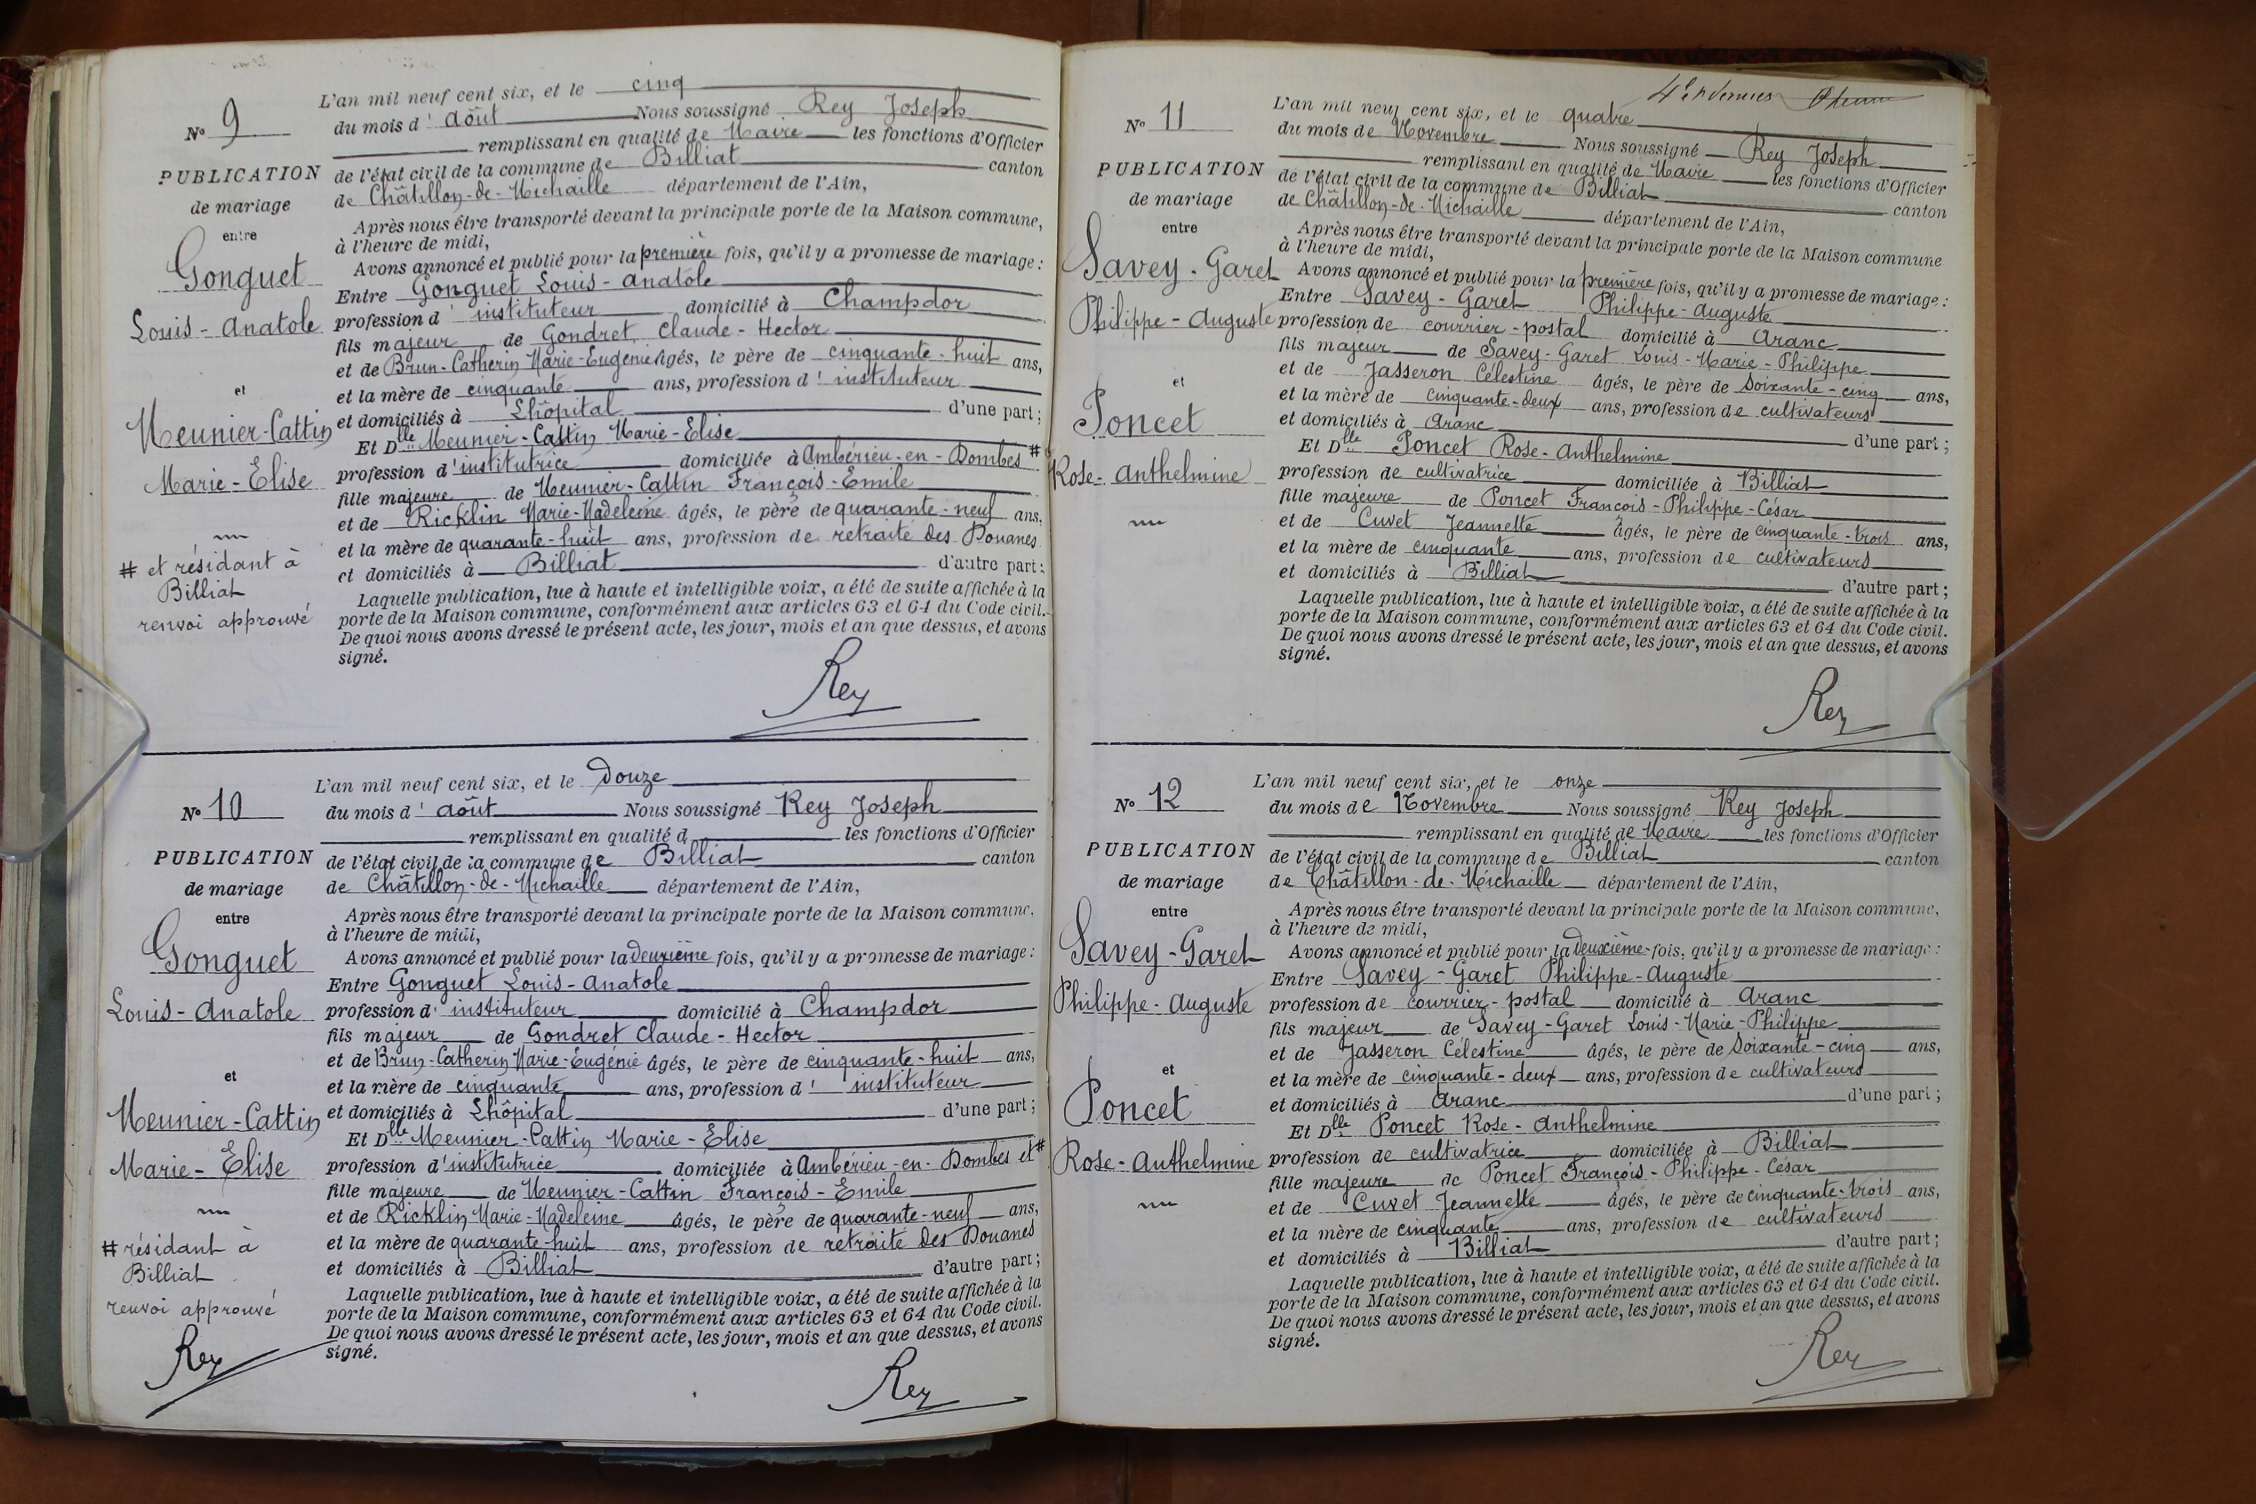 N° 9
PUBLICATION
de mariage
entre
Gonguet
Louis - Anatole
et
Meunier-Cattin
Marie - Elise
# et résidant à
Billiat
renvoi approuvé
L'an mil neuf cent six, et le cinq
du mois d' août Nous soussigné Rey Joseph
remplissant en qualité de Maire les fonctions d'Officier
de l'état civil de la commune de Billiat canton
de Châtillon-de-Michaille département de l'Ain,
Après nous être transporté devant la principale porte de la Maison commune,
à l'heure de midi,
Avons annoncé et publié pour la première fois, qu'il y a promesse de mariage :
Entre Gonguet Louis - Anatole
profession d' instituteur domicilié à Champdor
fils majeur de Gondret Claude - Hector
et de Brun-Catherin Marie-Eugénie âgés, le père de cinquante-huit ans,
et la mère de cinquante ans, profession d' instituteur
et domiciliés à Lhôpital d'une part ;
Et Dlle Meunier-Cattin Marie-Elise
profession d'institutrice domiciliée à Ambérieu-en-Dombes #
fille majeure de Meunier-Cattin François-Emile
et de Ricklin Marie-Madeleine âgés, le père de quarante-neuf ans,
et la mère de quarante-huit ans, profession de retraité des Douanes
et domiciliés à Billiat d'autre part ;
Laquelle publication, lue à haute et intelligible voix, a été de suite affichée à la
porte de la Maison commune, conformément aux articles 63 et 64 du Code civil.
De quoi nous avons dressé le présent acte, les jour, mois et an que dessus, et avons
signé.
Rey
N° 10
PUBLICATION
de mariage
entre
Gonguet
Louis - Anatole
et
Meunier-Cattin
Marie - Elise
# résidant à
Billiat
renvoi approuvé
Rey
L'an mil neuf cent six, et le Douze
du mois d' août Nous soussigné Rey Joseph
remplissant en qualité d les fonctions d'Officier
de l'état civil de la commune de Billiat canton
de Châtillon-de-Michaille département de l'Ain,
Après nous être transporté devant la principale porte de la Maison commune,
à l'heure de midi,
Avons annoncé et publié pour la deuxième fois, qu'il y a promesse de mariage :
Entre Gonguet Louis - Anatole
profession d' instituteur domicilié à Champdor
fils majeur de Gondret Claude - Hector
et de Brun-Catherin Marie-Eugénie âgés, le père de cinquante-huit ans,
et la mère de cinquante ans, profession d' instituteur
et domiciliés à Lhôpital d'une part ;
Et Dlle Meunier-Cattin Marie-Elise
profession d'institutrice domiciliée à Ambérieu-en-Dombes et #
fille majeure de Meunier-Cattin François-Emile
et de Ricklin Marie-Madeleine âgés, le père de quarante-neuf ans,
et la mère de quarante-huit ans, profession de retraité des Douanes
et domiciliés à Billiat d'autre part ;
Laquelle publication, lue à haute et intelligible voix, a été de suite affichée à la
porte de la Maison commune, conformément aux articles 63 et 64 du Code civil.
De quoi nous avons dressé le présent acte, les jour, mois et an que dessus, et avons
signé.
Rey
N° 11
PUBLICATION
de mariage
entre
Savey-Garet
Philippe-Auguste
et
Poncet
Rose-Anthelmine
L'an mil neuf cent six, et le quatre
du mois de Novembre Nous soussigné Rey Joseph
remplissant en qualité de Maire les fonctions d'Officier
de l'état civil de la commune de Billiat canton
de Châtillon-de-Michaille département de l'Ain,
Après nous être transporté devant la principale porte de la Maison commune
à l'heure de midi,
Avons annoncé et publié pour la première fois, qu'il y a promesse de mariage :
Entre Savey-Garet Philippe-Auguste
profession de courrier-postal domicilié à Aranc
fils majeur de Savey-Garet Louis-Marie-Philippe
et de Jasseron Célestine âgés, le père de soixante-cinq ans,
et la mère de cinquante-deux ans, profession de cultivateurs
et domiciliés à Aranc d'une part ;
Et Dlle Poncet Rose-Anthelmine
profession de cultivatrice domiciliée à Billiat
fille majeure de Poncet François-Philippe-César
et de Cuvet Jeannette âgés, le père de cinquante-trois ans,
et la mère de cinquante ans, profession de cultivateurs
et domiciliés à Billiat d'autre part ;
Laquelle publication, lue à haute et intelligible voix, a été de suite affichée à la
porte de la Maison commune, conformément aux articles 63 et 64 du Code civil.
De quoi nous avons dressé le présent acte, les jour, mois et an que dessus, et avons
signé.
Rey
N° 12
PUBLICATION
de mariage
entre
Savey-Garet
Philippe-Auguste
et
Poncet
Rose-Anthelmine
L'an mil neuf cent six, et le onze
du mois de Novembre Nous soussigné Rey Joseph
remplissant en qualité de Maire les fonctions d'Officier
de l'état civil de la commune de Billiat canton
de Châtillon-de-Michaille département de l'Ain,
Après nous être transporté devant la principale porte de la Maison commune,
à l'heure de midi,
Avons annoncé et publié pour la deuxième fois, qu'il y a promesse de mariage :
Entre Savey-Garet Philippe-Auguste
profession de courrier-postal domicilié à Aranc
fils majeur de Savey-Garet Louis-Marie-Philippe
et de Jasseron Célestine âgés, le père de soixante-cinq ans,
et la mère de cinquante-deux ans, profession de cultivateurs
et domiciliés à Aranc d'une part ;
Et Dlle Poncet Rose-Anthelmine
profession de cultivatrice domiciliée à Billiat
fille majeure de Poncet François-Philippe-César
et de Cuvet Jeannette âgés, le père de cinquante-trois ans,
et la mère de cinquante ans, profession de cultivateurs
et domiciliés à Billiat d'autre part ;
Laquelle publication, lue à haute et intelligible voix, a été de suite affichée à la
porte de la Maison commune, conformément aux articles 63 et 64 du Code civil.
De quoi nous avons dressé le présent acte, les jour, mois et an que dessus, et avons
signé.
Rey